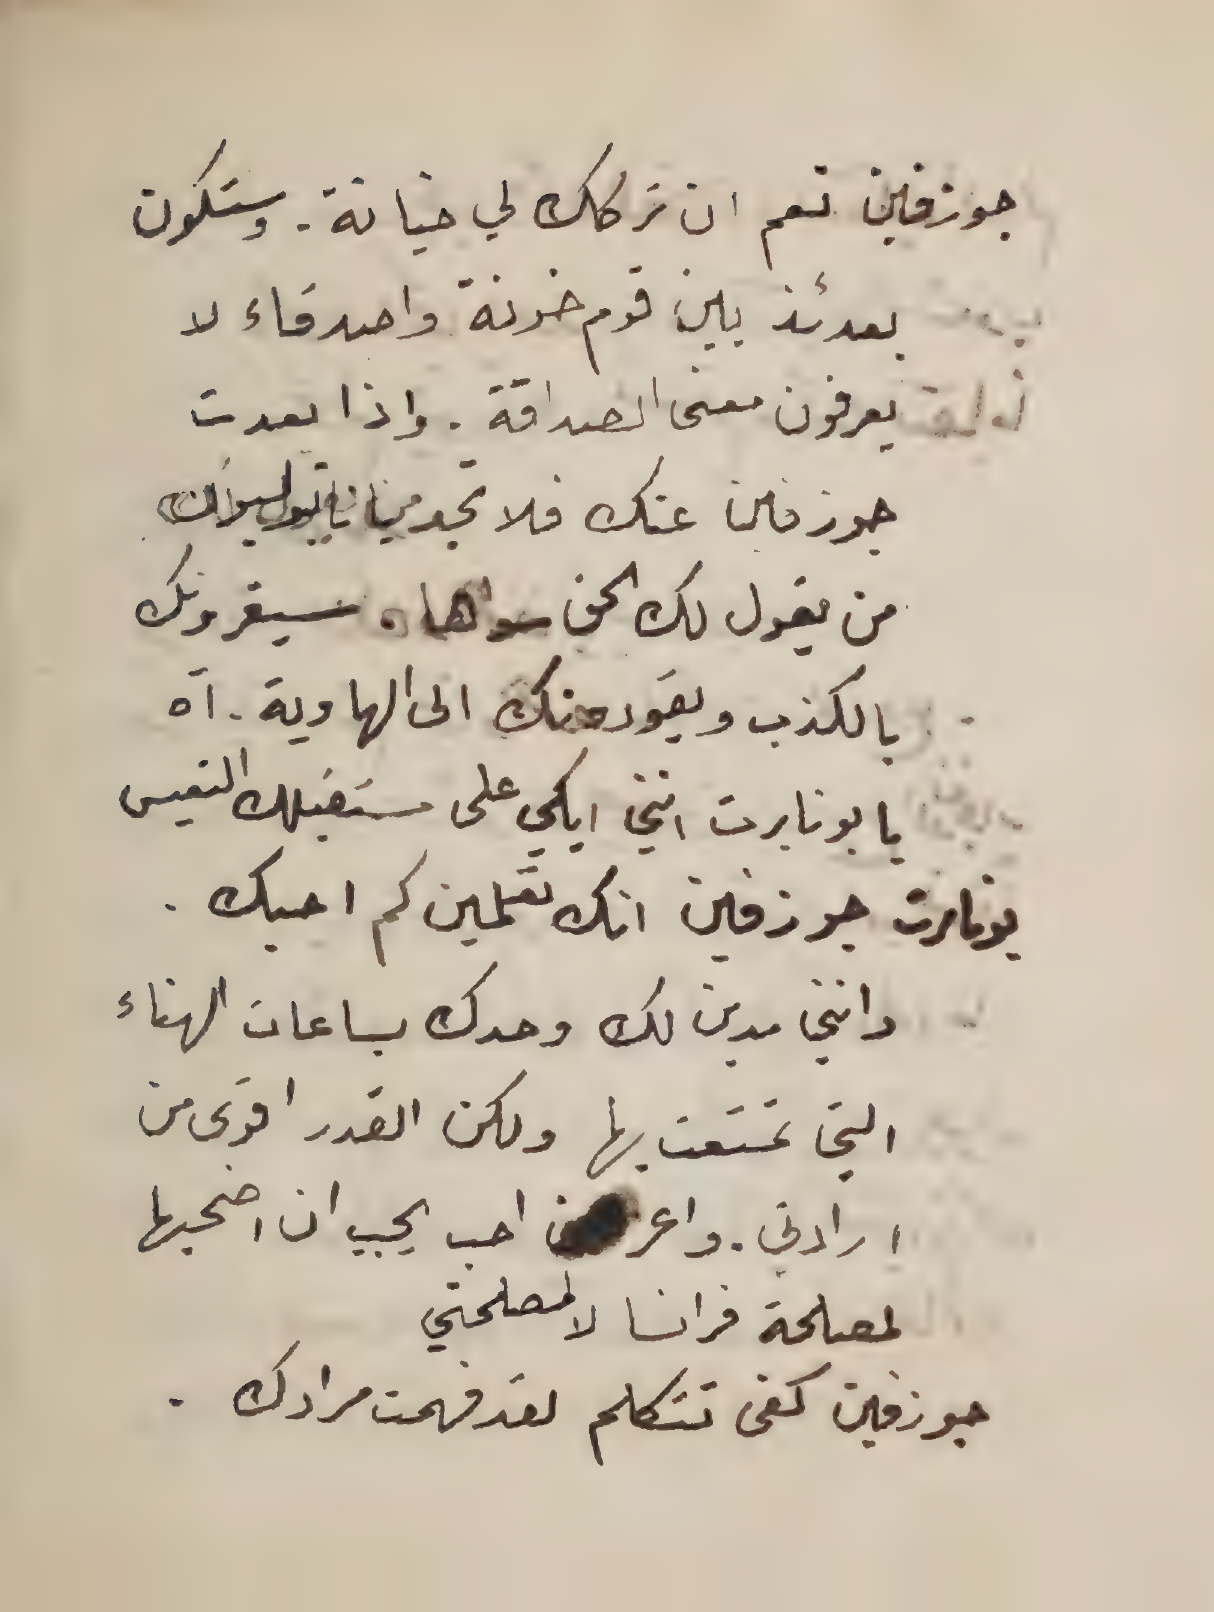 جوزفين نعم ان تركك لي خيانة . وستكون
بعدئذ بين قوم خونة واصدقاء لا
يعرفون معنى الصداقة . واذا بعدت
جوزفين عنك فلا تجد من يا نابوليون
من يقول لك الحق سواها . سيغرونك
بالكذب ويقودونك الى الهاوية . آه
يا بونابرت انني ابكي على مستقبلك التعيس
بونابرت جوزفين انك تعلمين كم احبك .
وانني مدين لك وحدك بساعات الهناء
التي تمتعت بها ولكن القدر اقوى من
ارادتي . واعز من احب يجب ان اضحيها
لمصلحة فرانسا لا لمصلحتي
جوزفين كفى تتكلم لقد فهمت مرادك .